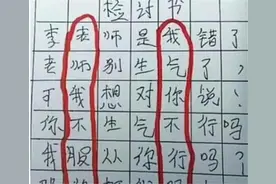 检讨书
李老师是我错了
老师别生气了，
可我想对你说！
你不生气不行吗？
我服从你行吗？